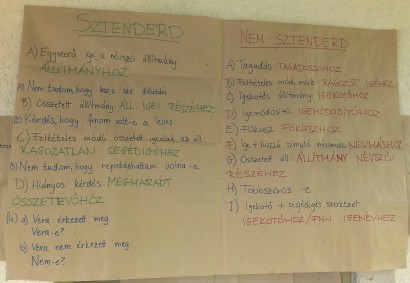 SZTENDERD
A) Egyszerű igei, s névszói állítmány:
ÁLLÍTMÁNYHOZ
(1) Nem tudom, hogy lesz-e ma délután.
B) Összetett állítmány: ÁLL. IGEI RÉSZÉHEZ
(2) Kérdés, hogy finom volt-e a leves.
C) Feltételes módú összetett igealak az áll.:
RAGOZATLAN SEGÉDIGÉHEZ
(3) Nem tudom, hogy repedezhattam volna-e.
D) Hiányos kérdés: MEGMARADT
ÖSSZETEVŐHÖZ
(4) a) Vera érkezett meg.
Vera-e?
b) Vera nem érkezett meg.
Nem-e?
NEM SZTENDERD
A) Tagadás TAGADÓSZÓHOZ
B) Feltételes mód, múlt: RAGOZOTT IGÉHEZ
C) Igekötős állítmány: IGEKÖTŐHÖZ
D) Igemódosító: IGEMÓDOSÍTÓHOZ
E) Fókusz: FÓKUSZHOZ
F) Igét + hozzá simuló névmás: NÉVMÁSHOZ
G) Összetett áll.: ÁLLÍTMÁNY NÉVSZÓI
RÉSZÉHEZ
H) Többszörös -e
I) Igekötő + segédigés szerkezet:
IGEKÖTŐHÖZ/FN-I IGENÉVHEZ